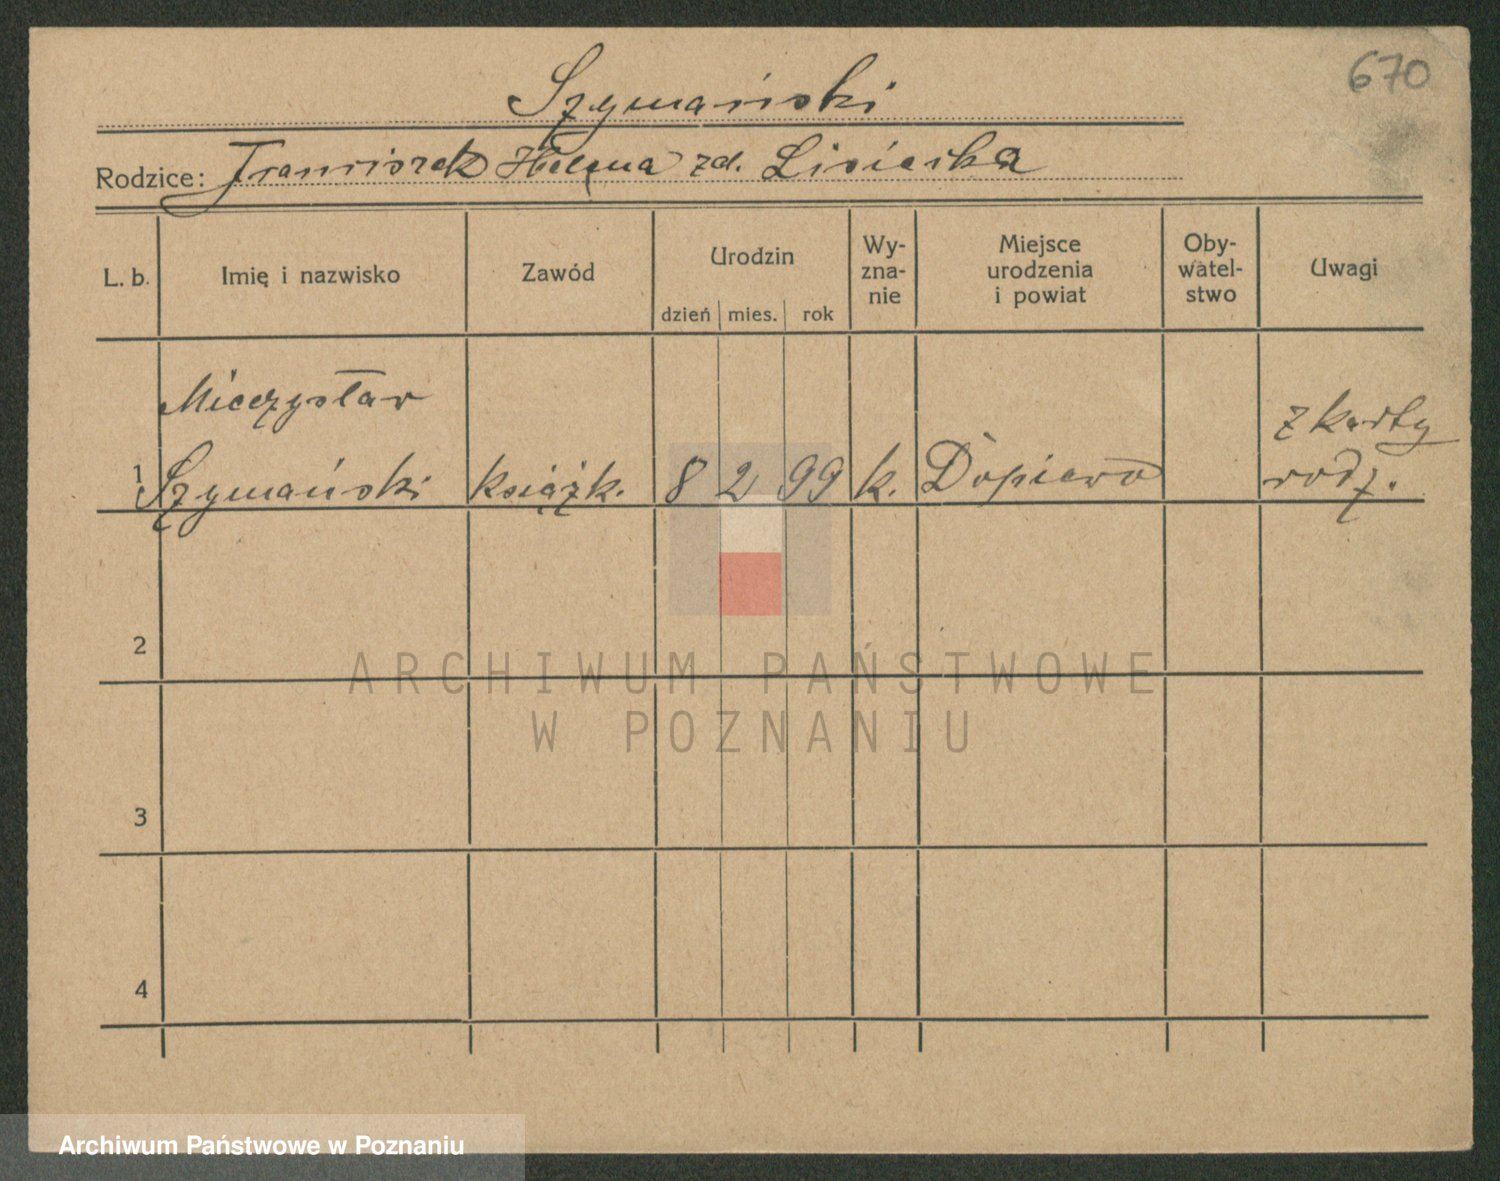 670
Szymański
Rodzice: Franciszek Helena zd. Lisiecka
L. b.
Imię i nazwisko
Zawód
Urodzin
dzień mies. rok
Wy-
zna-
nie
Miejsce
urodzenia
i powiat
Oby-
watel-
stwo
Uwagi
Mieczysław
1 Szymański książk. 8 2 99 k. Dopiewo
z karty
rodz.
2
3
4
ARCHIWUM PAŃSTWOWE
W POZNANIU
Archiwum Państwowe w Poznaniu